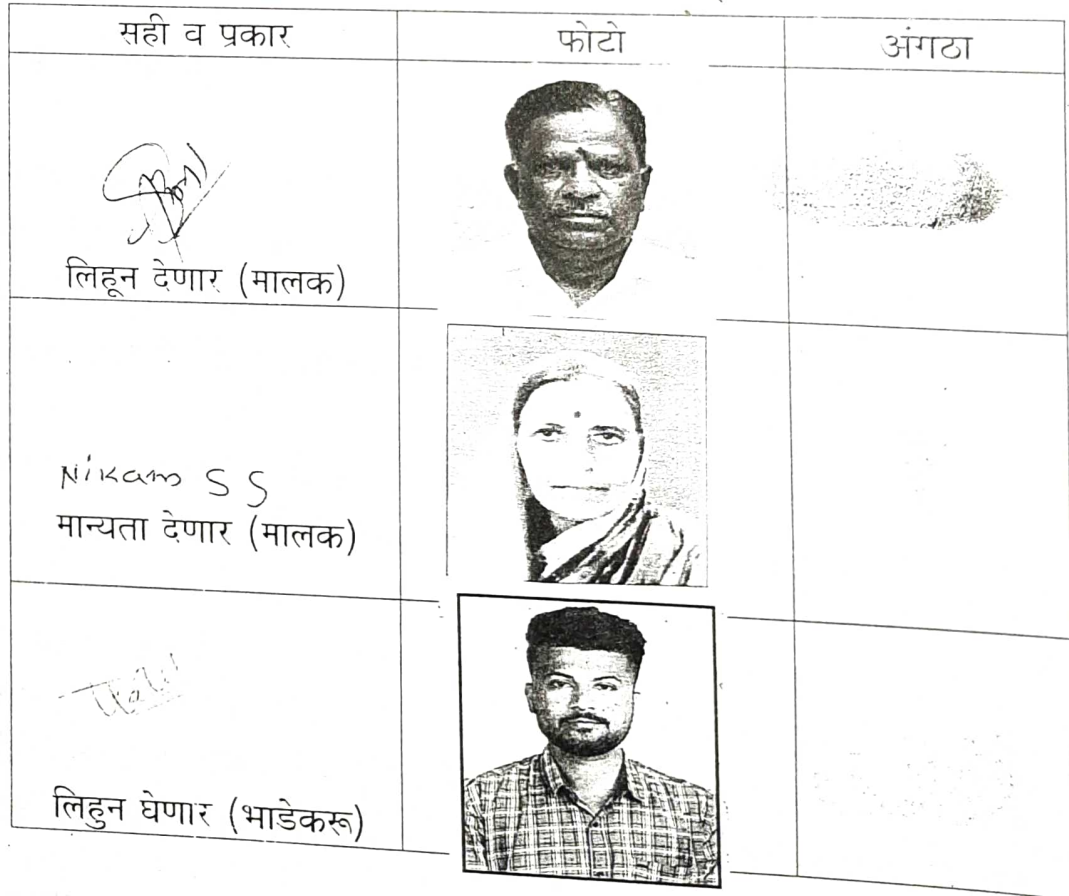 सही व प्रकार फोटो अंगठा
लिहून देणार (मालक)
Nikam S S
मान्यता देणार (मालक)
लिहुन घेणार (भाडेकरू)